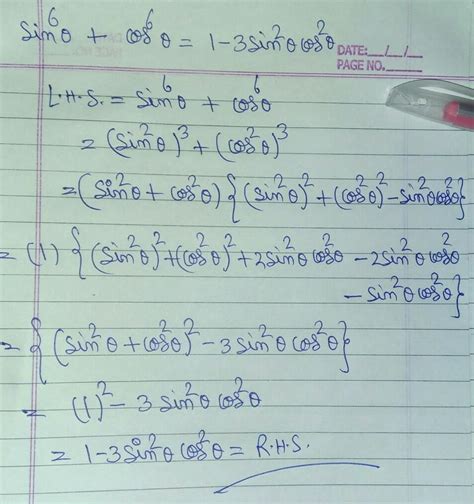 sin⁶θ + cos⁶θ = 1-3sin²θcos²θ
DATE:__/__/__
PAGE NO.____
L.H.S. = sin⁶θ + cos⁶θ
= (sin²θ)³ + (cos²θ)³
= (sin²θ + cos²θ) {(sin²θ)² + (cos²θ)² - sin²θcos²θ}
= (1) {(sin²θ)² + (cos²θ)² + 2sin²θcos²θ - 2sin²θcos²θ
- sin²θcos²θ}
= {(sin²θ + cos²θ)² - 3sin²θcos²θ}
= (1)² - 3sin²θcos²θ
= 1-3sin²θcos²θ = R.H.S.